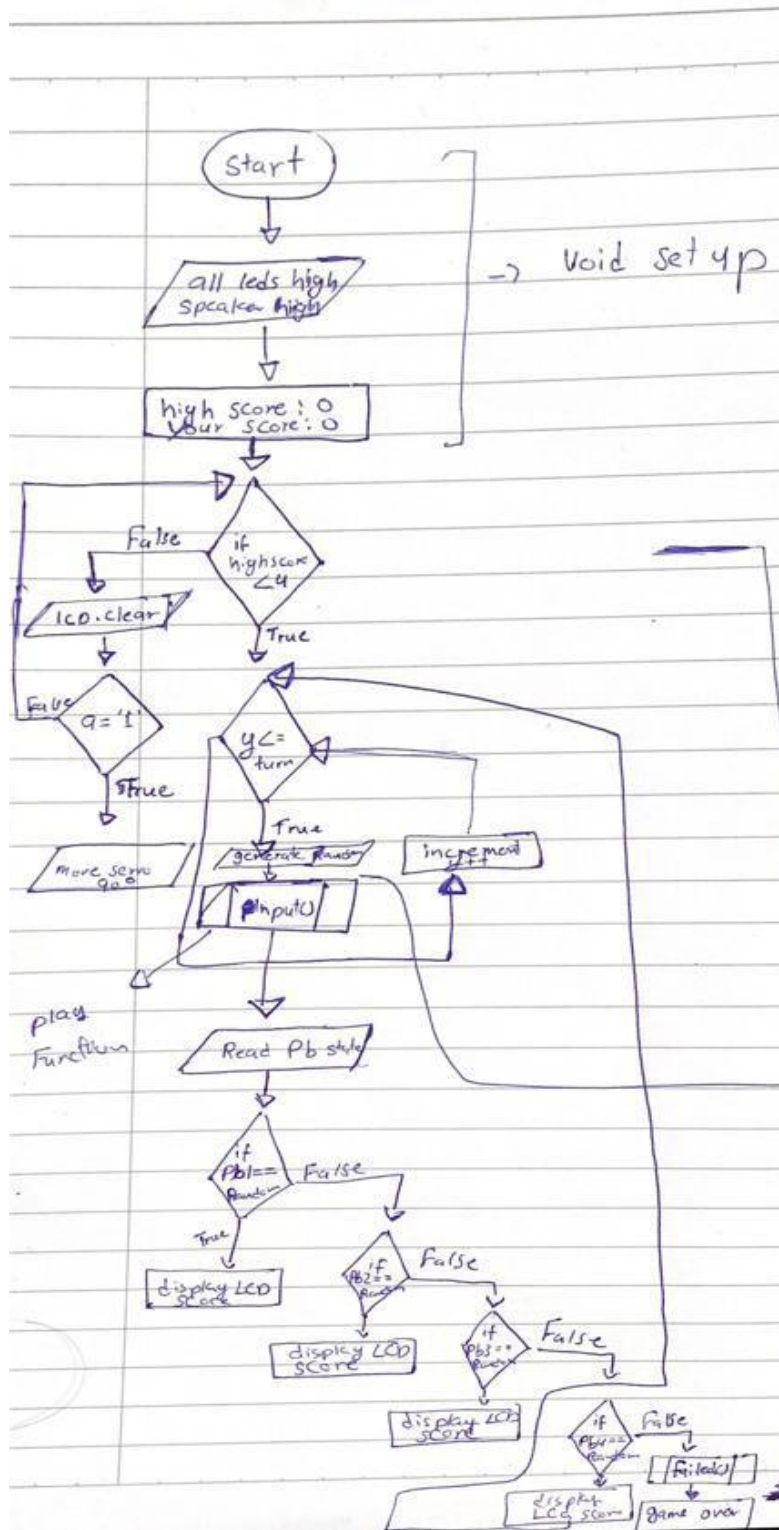 start
all leds high
speaker high
→ void setup
high score : 0
your score : 0
if
highscore
<4
False
True
LCD.clear
a = '1'
False
True
move servo
90°
y <=
turn
True
generate Random
increment
y++
Input()
play
Function
Read Pb state
if
Pb1==
Random
False
True
display LCD
score
if
Pb2==
Random
False
display LCD
score
if
Pb3==
Random
False
display LCD
score
if
Pb4==
Random
False
display
LCD score
Failed()
game over